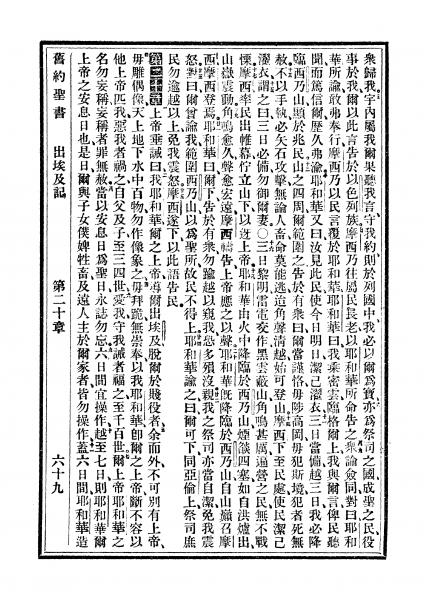 衆歸我宇內屬我爾果聽我言守我約則於列國中我必以爾爲寶亦爲祭司之國成聖之民役
事於我爾以此言告於以色列族摩西乃往屬民長老以耶和華所命告之衆論僉同對曰耶和
華所諭敢弗奉行摩西乃以民言復於耶和華耶和華曰我乘密雲臨格爾上我與爾言俾民聽
聞而篤信爾歷久弗渝耶和華又曰汝見此民使今日明日潔己濯衣三日當備越三日我必降
臨西乃山顯於兆民山之四周爾範圍之告於有衆曰爾當謹恪毋陟高岡毋犯斯境犯者死無
赦不以手執必矢石攻擊無論人畜命莫能逃迨角聲清越始可登山摩西下至民處使民潔己
濯衣謂之曰三日必備勿御爾妻○三日黎明雷電交作黑雲蔽山角鳴甚厲遍營之民無不戰
慄摩西率民出帷幕佇立山下以迓上帝耶和華由火中降臨於西乃山煙燄四塞如自洪爐出
山嶽震動角鳴愈久聲愈宏遠摩西禱告上帝應之以聲耶和華旣降臨於西乃山自山巔召摩
西摩西登焉耶和華曰爾下告於有衆勿踰越以窺我恐多殞沒親我之祭司亦當自潔免我震
怒對曰爾曾諭我範圍西乃山以爲聖所故民不得上耶和華諭之曰爾可下同亞倫上祭司庶
民勿逾越以上免我震怒摩西遂下以此語告民
第二十章 上帝垂誡曰我耶和華爾之上帝導爾出埃及脫爾於賤役者余而外不可別有上帝
毋雕偶像天上地下水中百物勿作像象之毋拜跪無崇奉以我耶和華卽爾之上帝斷不容以
他上帝匹我惡我者禍之自父及子至三四世愛我守我誡者福之至千百世爾上帝耶和華之
名勿妄稱妄稱者罪無赦當以安息日爲聖日永誌勿忘六日間宜操作越至七日則耶和華爾
上帝之安息日也是日爾與子女僕婢牲畜及遠人主於爾家者皆勿操作蓋六日間耶和華造
舊約聖書 出埃及記 第二十章 六十九